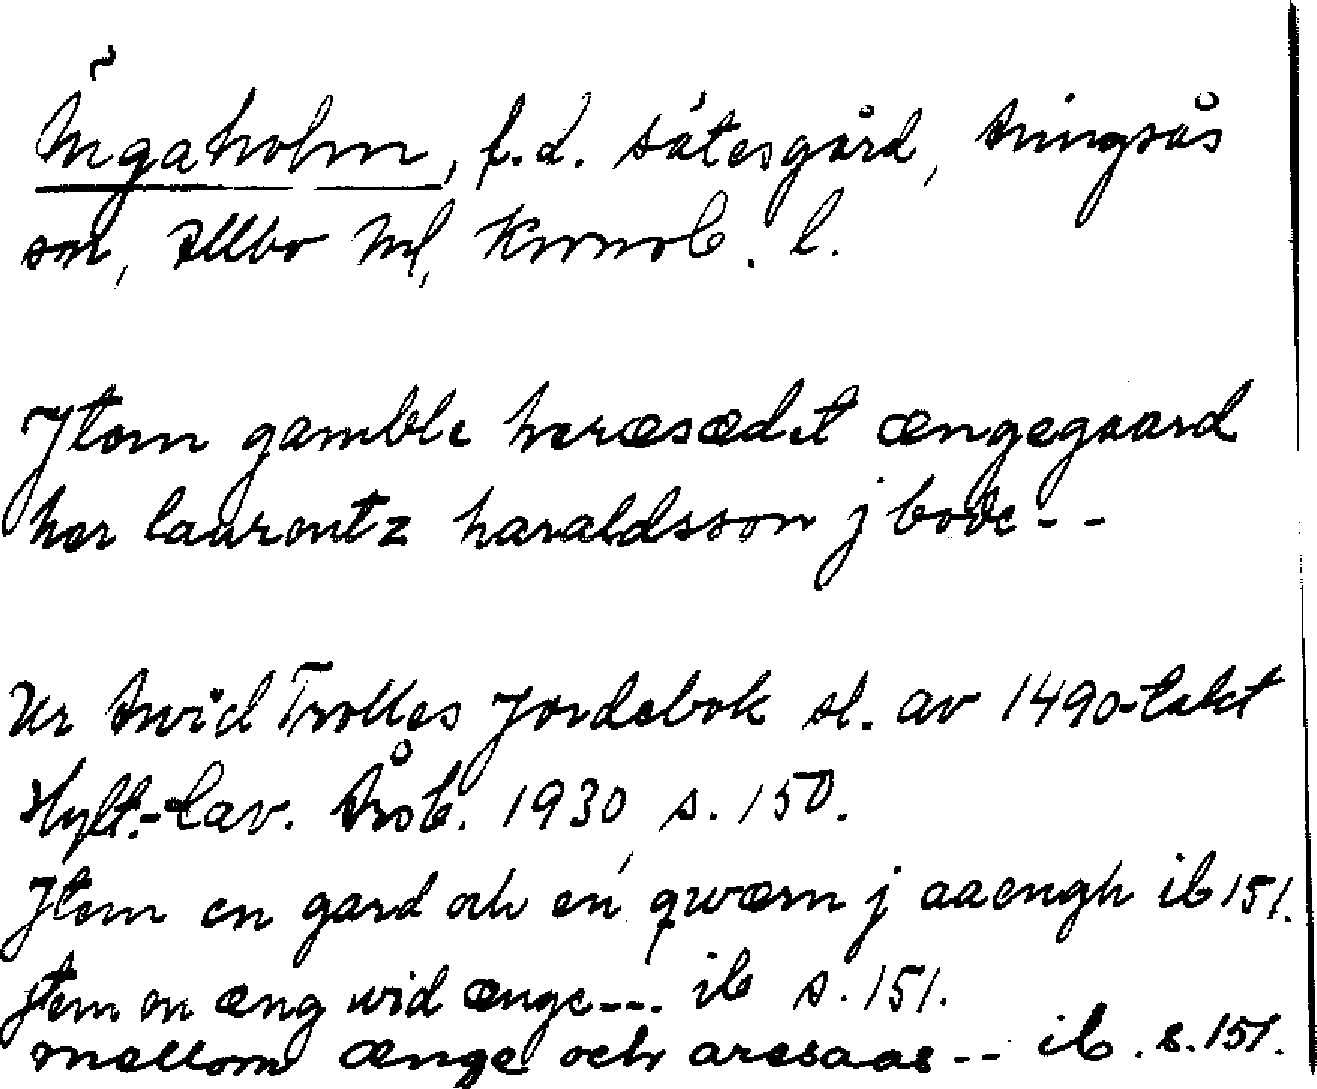 Ängaholm, f.d. sätesgård, Aringsås
sn, Allbo hd, Kronob. l.
Jtem gamble heræsædet ængegaard
her laurentz haraldsson j bode--
Ur Arvid Trolles Jordebok sl. av 1490-talet
Hylt.-Cav. Årsb. 1930 s. 150.
Jtem en gard och en qwærn j aaengh ib 151.
Jtem en æng wid ænge--- ib s. 151.
mellom ænge och aresaas -- ib. s. 151.